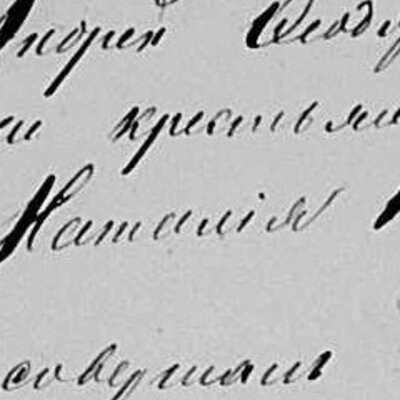 Андрей Ѳеод
крестьян
Наталія
совершал